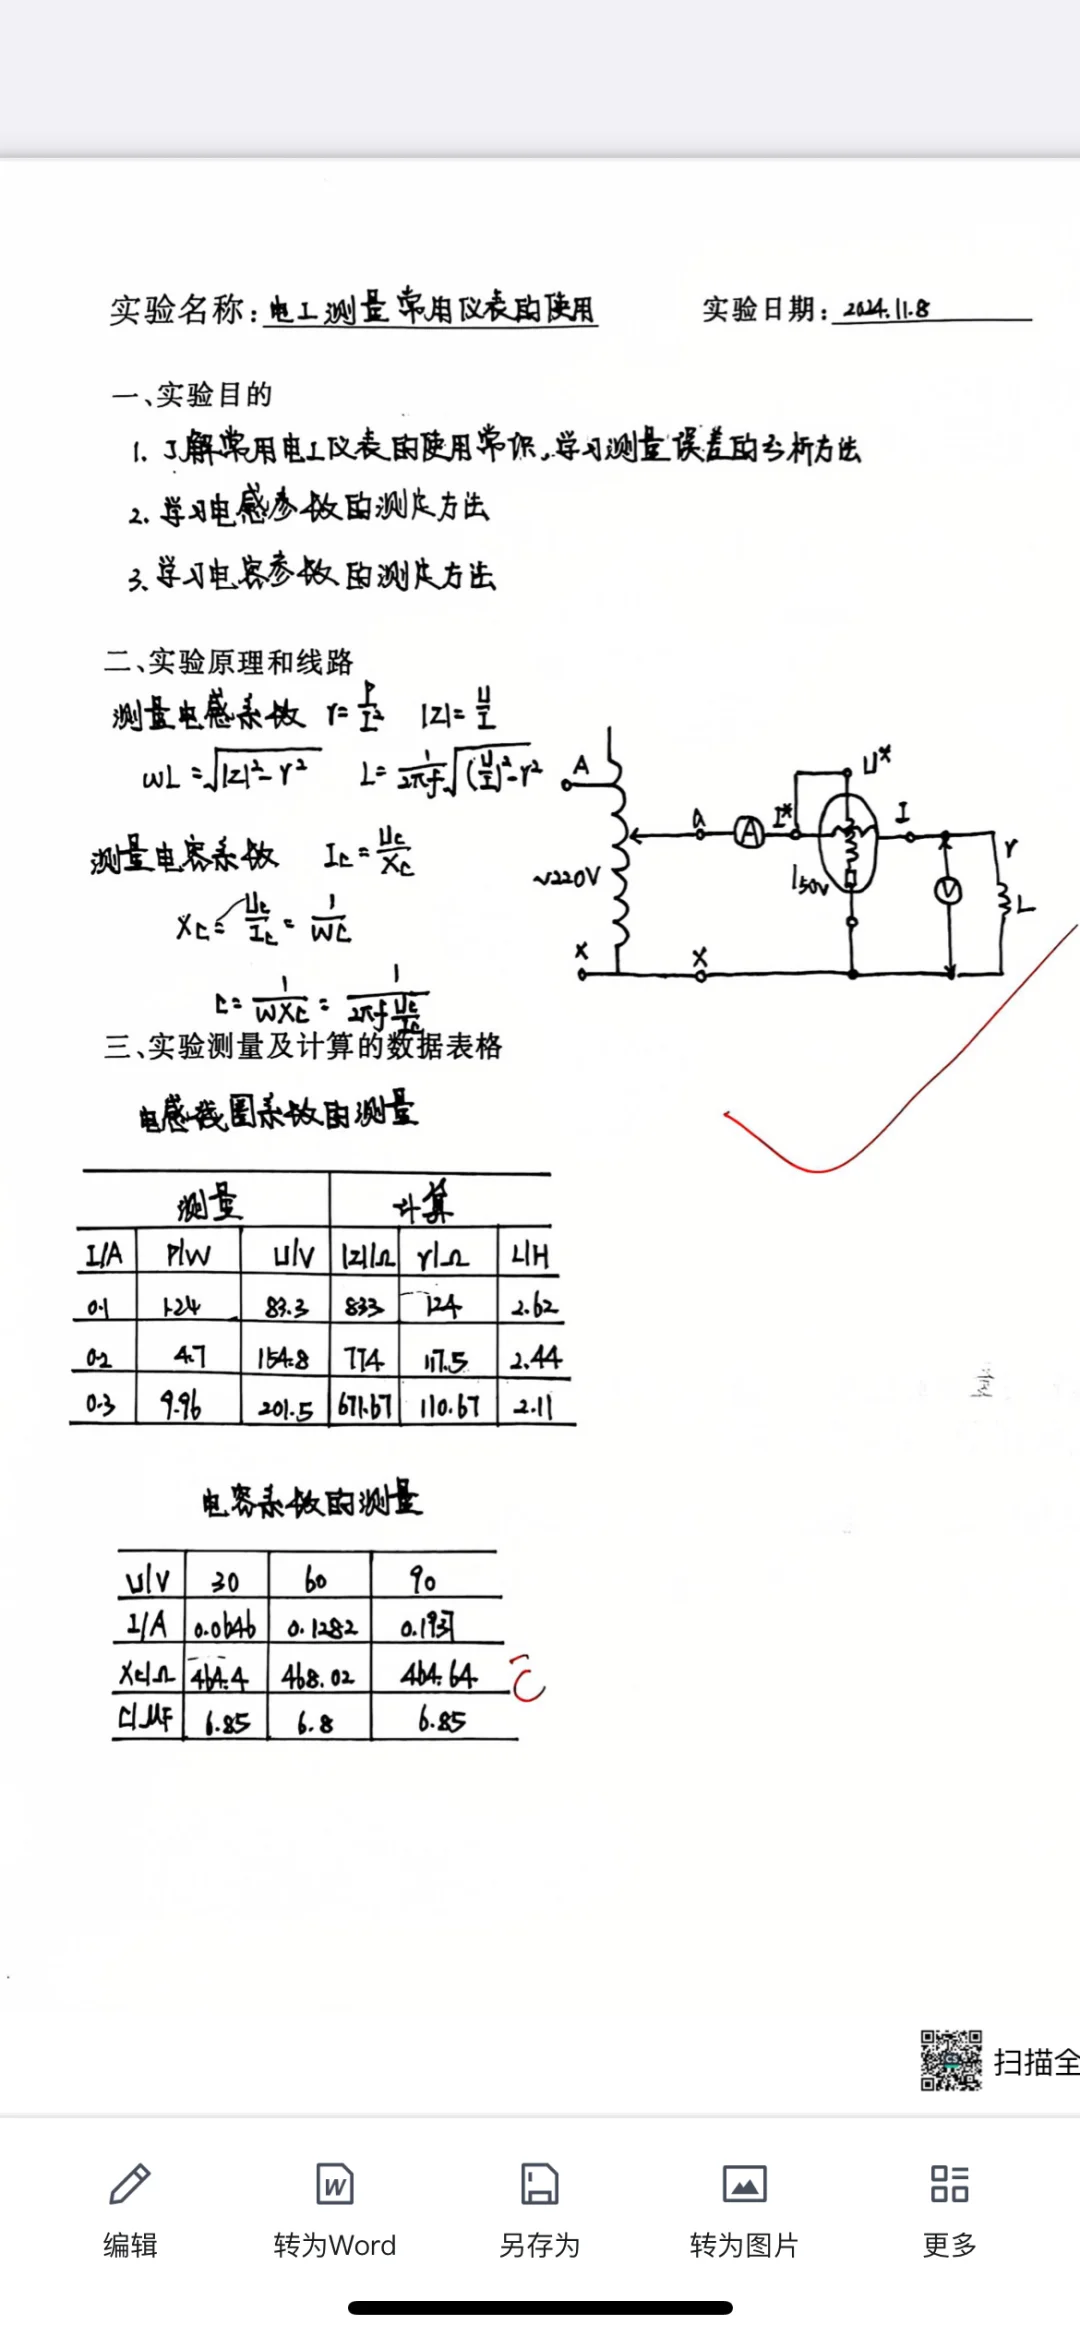 实验名称：电工测量常用仪表的使用 实验日期：2024.11.8
一、实验目的
1. 了解常用电工仪表的使用常识。学习测量误差的分析方法
2. 学习电感参数的测定方法
3. 学习电容参数的测定方法
二、实验原理和线路
测量电感系数 r=P/I² |Z|=U/I
WL=√(|Z|²-r²) L=1/2πf √((U/I)²-r²)
测量电容系数 Ic=Uc/Xc
Xc=Uc/Ic=1/WC
C=1/WXc=1/(2πf Uc/Ic)
A
~220V
X
a
X
A
I*
U*
I
150V
V
r
L
三、实验测量及计算的数据表格
电感线圈系数的测量
测量 计算
I/A P/W U/V |Z|/Ω r/Ω L/H
0.1 1.24 83.3 833 124 2.62
0.2 4.7 154.8 774 117.5 2.44
0.3 9.96 201.5 671.67 110.67 2.11
电容系数的测量
U/V 30 60 90
I/A 0.0646 0.1282 0.1937
Xc/Ω 464.4 468.02 464.64
C/μF 6.85 6.8 6.85
扫描全
编辑 转为Word 另存为 转为图片 更多